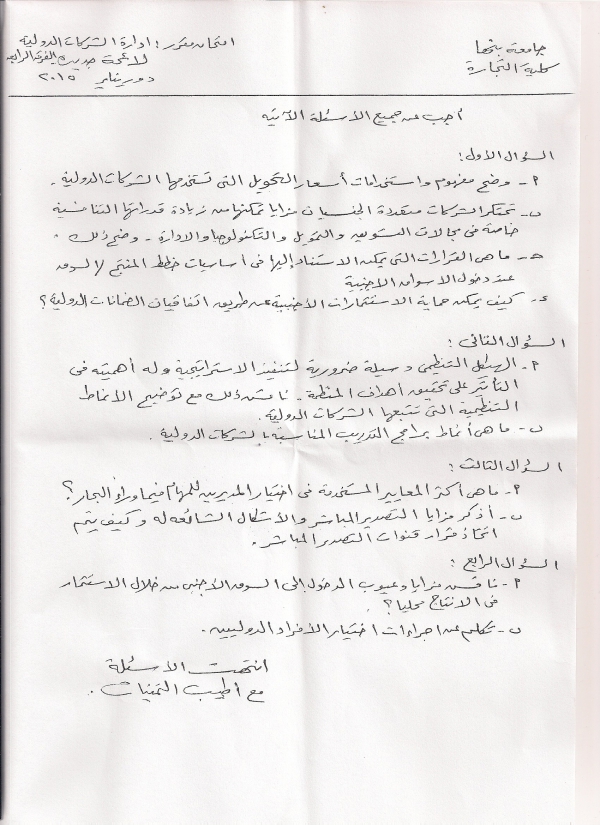 جامعة بنها
كلية التجارة
امتحان مقرر: ادارة الشركات الدولية
لائحة جديدة الفرقة الرابعة
دور يناير ٢٠١٥
أجب عن جميع الأسئلة الآتية
السؤال الأول:
٩- وضح مفهوم واستخدامات أسعار التحويل التى تستخدمها الشركات الدولية.
ب- تحتكر الشركات متعددة الجنسيات مزايا تمكنها من زيادة قدراتها التنافسية
خاصة فى مجالات التسويق والتمويل والتكنولوجيا والادارة - وضح ذلك.
ج- ماهى القرارات التى يمكن الاستناد إليها فى أساسيات خطط المنتج / السوق
عند دخول الاسواق الاجنبية
د- كيف يمكن حماية الاستثمارات الأجنبية عن طريق اتفاقيات الضمانات الدولية؟
السؤال الثانى:
٩- الهيكل التنظيمى وسيلة ضرورية لتنفيذ الاستراتيجية وله أهميته فى
التأثير على تحقيق أهداف المنظمة - ناقش ذلك مع توضيح الأنماط
التنظيمية التى تتبعها الشركات الدولية.
ب- ماهى أنماط برامج التدريب المناسبة بالشركات الدولية.
السؤال الثالث:
٩- ماهى أكثر المعايير المستخدمة فى اختيار المديرين للمهام فيما وراء البحار؟
ب- أذكر مزايا التصدير المباشر والأشكال الشائعة له وكيف يتم
اتخاذ قرار قنوات التصدير المباشر.
السؤال الرابع:
٩- ناقش مزايا وعيوب الدخول إلى السوق الأجنبى من خلال الاستثمار
فى الانتاج محليا؟
ب- تكلم عن اجراءات اختيار الأفراد الدوليين.
انتهت الأسئلة
مع أطيب التمنيات.